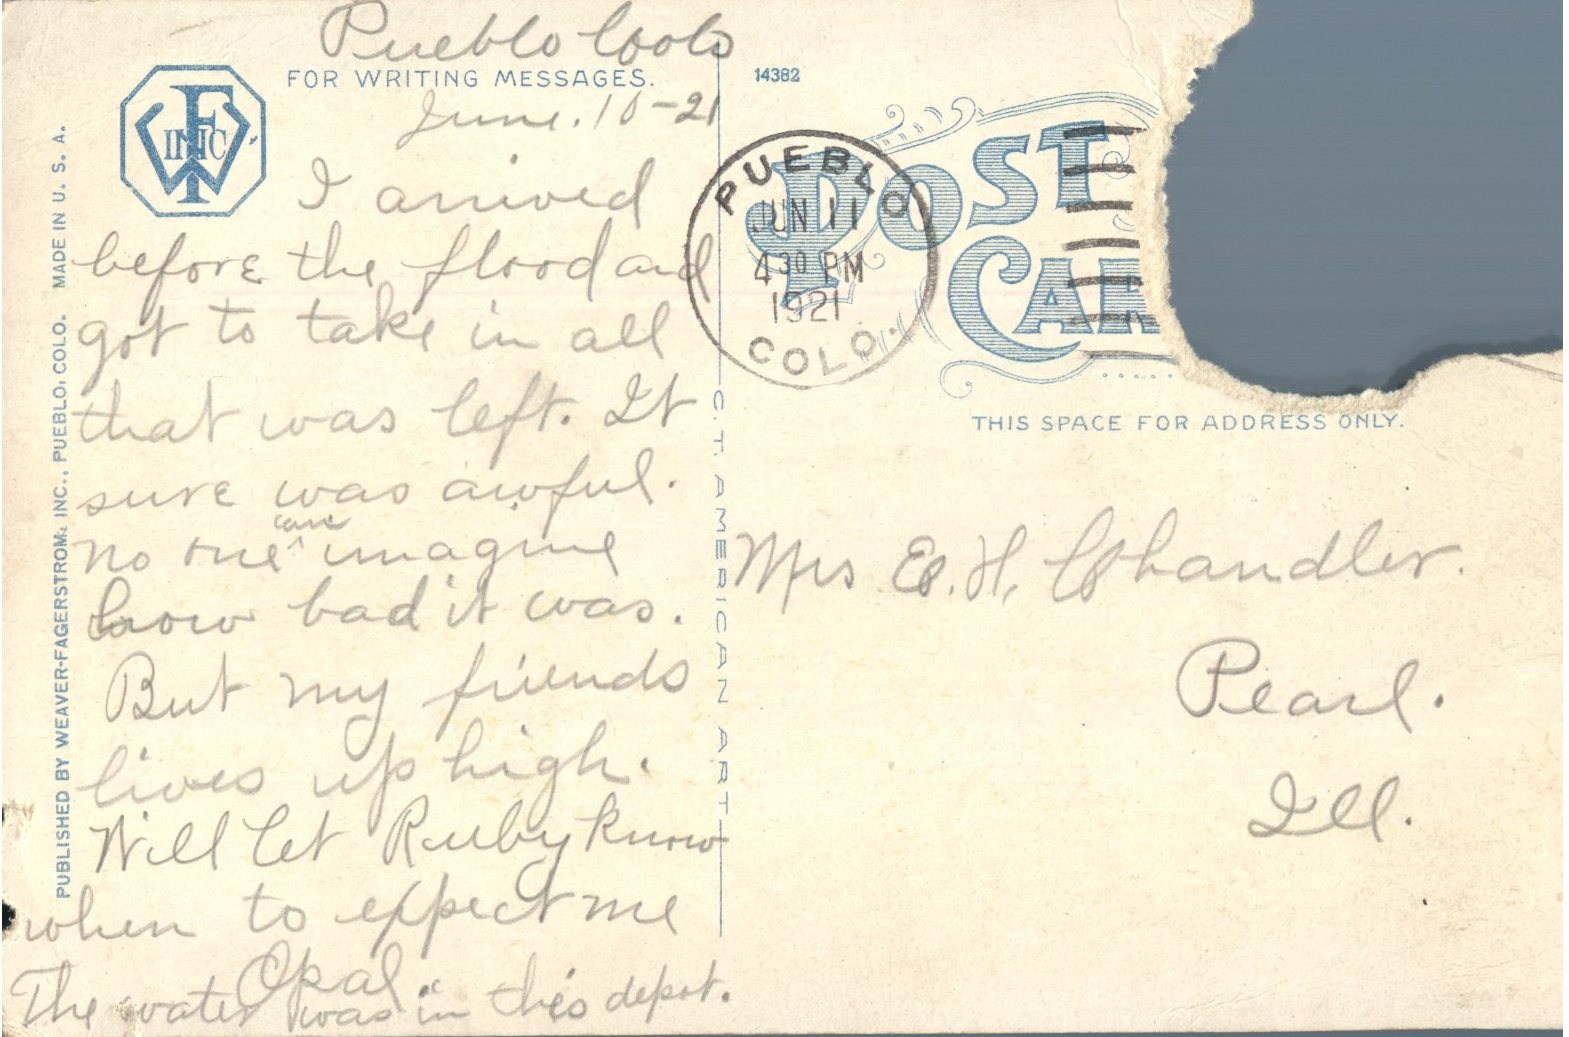 Pueblo Colo
FOR WRITING MESSAGES.
June. 10-21
I arrived
before the flood and
got to take in all
that was left. It
sure was awful.
no one can imagine
how bad it was.
But my friends
lives up high.
Will let Ruby know
when to expect me
Opal.
The water was in this depot.
PUBLISHED BY WEAVER-FAGERSTROM, INC., PUEBLO, COLO. MADE IN U. S. A.
F
W INC
C. T. AMERICAN ART
14382
POST
CAR
PUEBLO
JUN 11
4 30 PM
1921
COLO.
THIS SPACE FOR ADDRESS ONLY.
Mrs E. H. Chandler.
Pearl.
Ill.